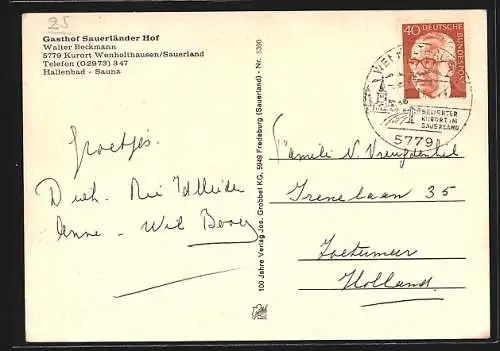 25
Gasthof Sauerländer Hof
Walter Beckmann
5779 Kurort Wenholthausen/Sauerland
Telefon (02973) 347
Hallenbad - Sauna
Groetjes.
Anne - Wil
100 Jahre Verlag Jos. Grobbel KG, 5949 Fredeburg (Sauerland) - Nr. 5390
40
DEUTSCHE
BUNDESPOST
BELIEBTER
KURORT IM
SAUERLAND
5779
Familie N. Vreugdenhil
Irenelaan 35
Zoetermeer
Holland.